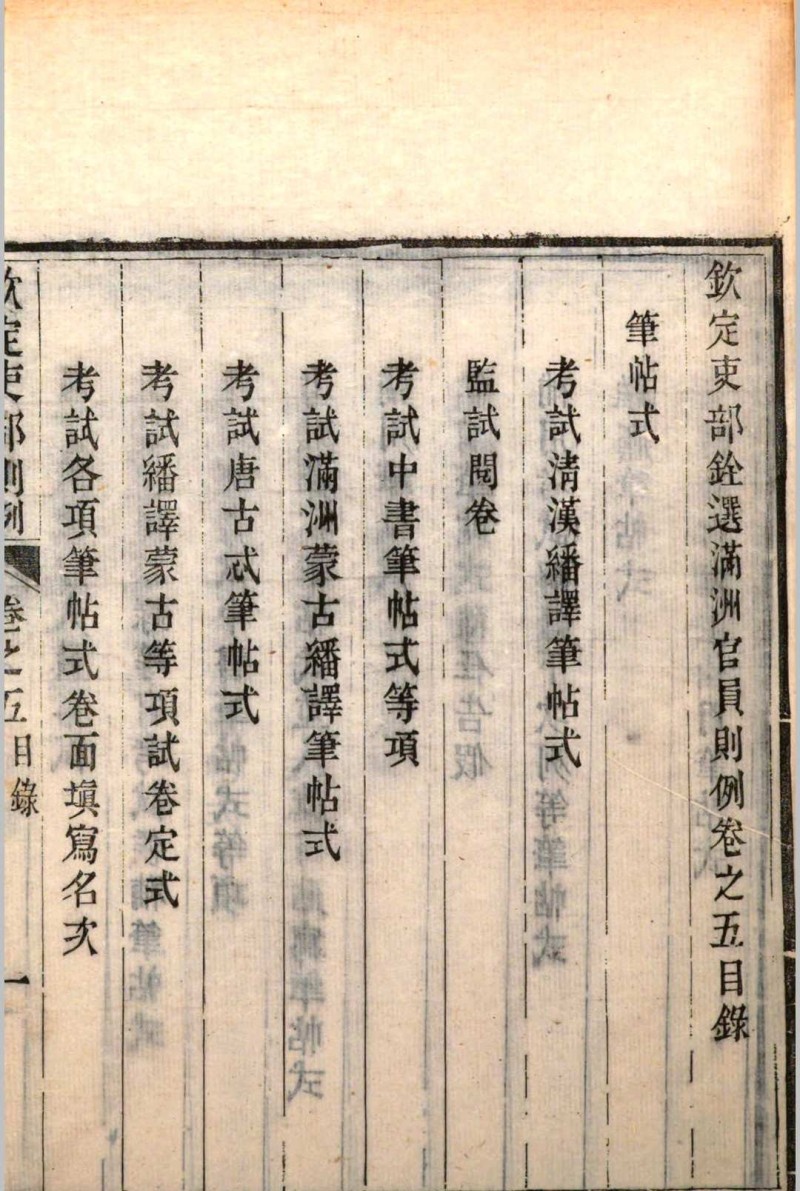 欽定吏部銓選滿洲官員則例卷之五目錄
筆帖式
考試清漢繙譯筆帖式
監試閱卷
考試中書筆帖式等項
考試滿洲蒙古繙譯筆帖式
考試唐古忒筆帖式
考試繙譯蒙古等項試卷定式
考試各項筆帖式卷面填寫名次
欽定吏部則例 卷之五目錄 一